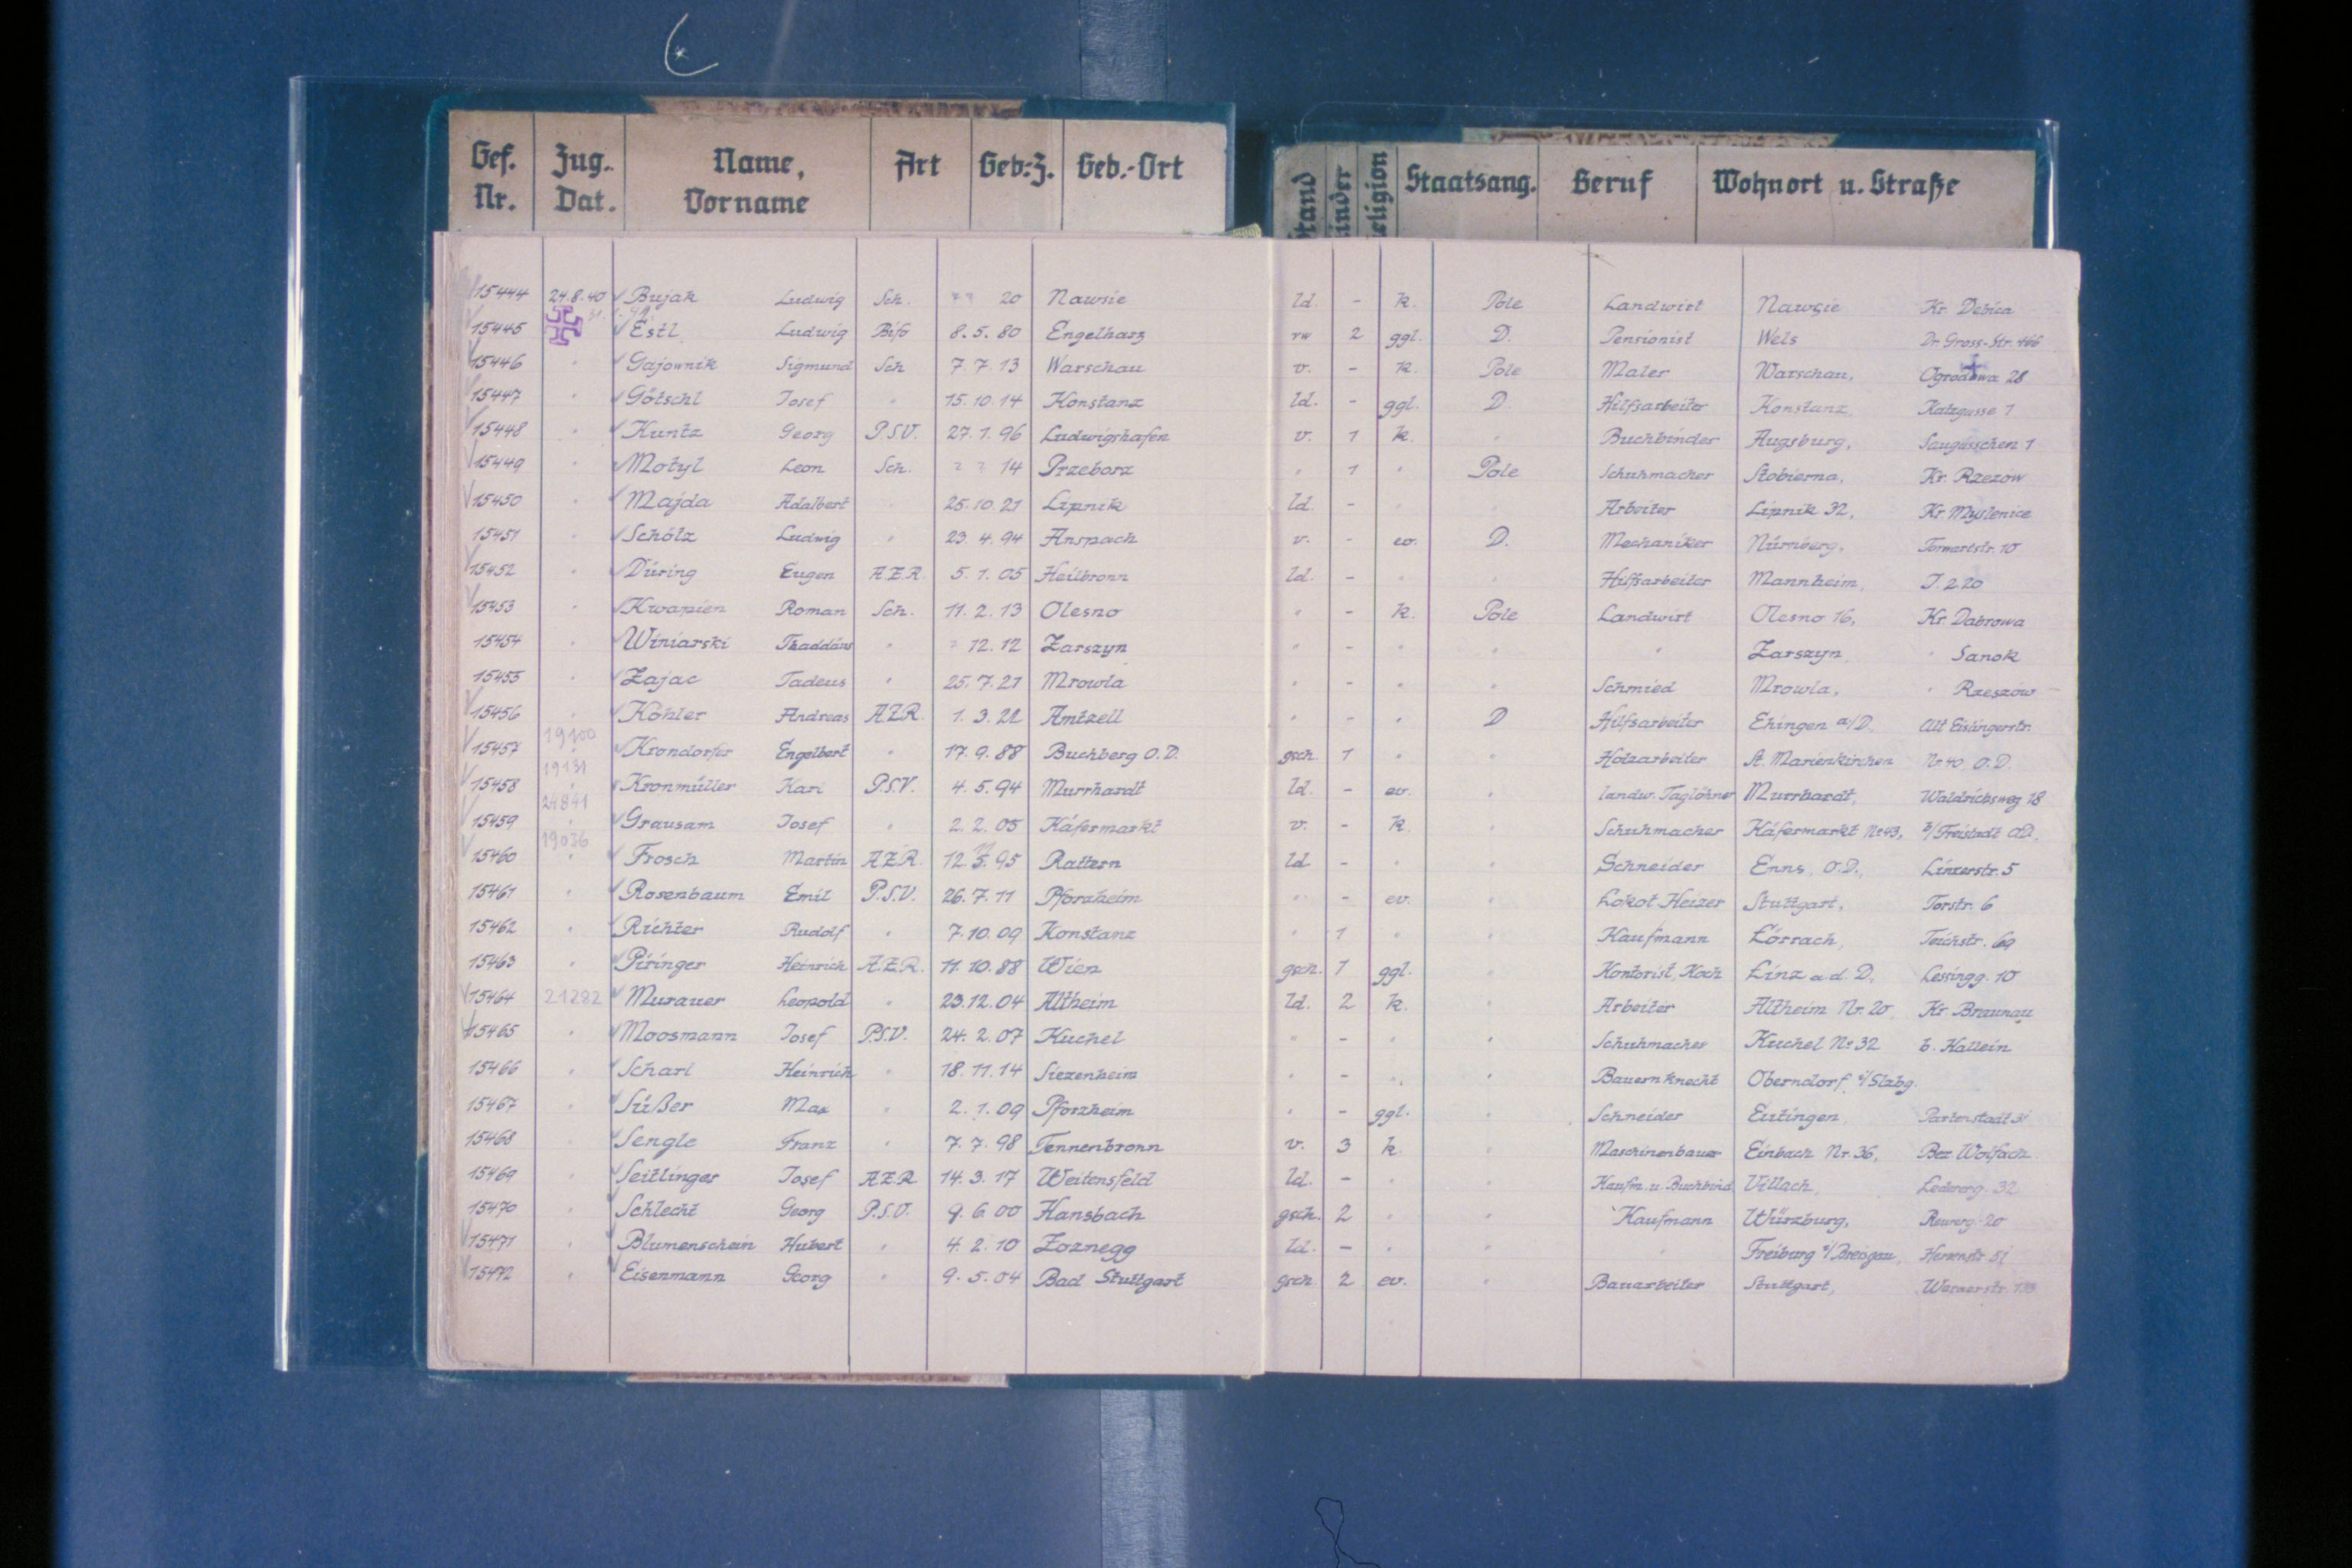 Gef. Nr. Zug. Dat. Name, Vorname Art Geb.-Z. Geb.-Ort Stand Kinder Religion Staatsang. Beruf Wohnort u. Straße
15444 24.8.40 Bujak Ludwig Sch. ? ? 20 Nawsie ld. - k. Pole Landwirt Nawsie Kr. Debica
15445 Estl Ludwig Bifo 8.5.80 Engelharz rw 2 ggl. D. Pensionist Wels Dr. Gross-Str. 466
15446 " Gajownik Sigmund Sch 7.7.13 Warschau v. - k. Pole Maler Warschau, Ogrodowa 28
15447 " Götschl Josef " 15.10.14 Konstanz ld. - ggl. D. Hilfsarbeiter Konstanz, Katzgasse 1
15448 " Kuntz Georg P.S.V. 27.1.96 Ludwigshafen v. 1 k. " Buchbinder Augsburg, Saugässchen 1
15449 " Motyl Leon Sch. ? ? 14 Przeborz " 1 " Pole Schuhmacher Stobierna, Kr. Rzezow
15450 " Majda Adalbert 25.10.21 Lipnik ld. - " " Arbeiter Lipnik 32, Kr. Myslenice
15451 " Schölz Ludwig " 23.4.94 Anspach v. - ev. D. Mechaniker Nürnberg,
15452 " Düring Eugen A.Z.R. 5.1.05 Heilbronn ld. - " " Hilfsarbeiter Mannheim, J. 2.20
15453 " Kwapien Roman Sch. 11.2.13 Olesno " - k. Pole Landwirt Olesno 16, Kr. Dabrowa
15454 " Winiarski Thaddäus " ? 12.12 Zarszyn " - " " " Zarszyn, " Sanok
15455 " Zajac Tadeus " 25.7.21 Mrowla " - " " Schmied Mrowla, " Rzeszow
15456 " Köhler Andreas A.Z.R. 1.3.22 Amtzell " - " D Hilfsarbeiter Ehingen a/D.
15457 19100 Krondorfer Engelbert " 17.9.88 Buchberg O.D. gsch. 1 " " Holzarbeiter St. Marienkirchen Nr. 40, O.D.
15458 19131 Kronmüller Karl P.S.V. 4.5.94 Murrhardt ld. - ev. " landw. Taglöhner Murrhardt, Waldrichsweg 18
15459 24841 Grausam Josef " 2.2.05 Käfermarkt v. - k. " Schuhmacher Käfermarkt Nr 43, b/Freistadt O.D.
15460 19036 Frosch Martin A.Z.R. 12.5.95 Rattern ld. - " " Schneider Enns, O.D., Linzerstr. 5
15461 " Rosenbaum Emil P.S.V. 26.7.11 Pforzheim " - ev. " Lokot. Heizer Stuttgart, Torstr. 6
15462 " Richter Rudolf " 7.10.09 Konstanz " 1 " " Kaufmann Lörrach, Teichstr. 69
15463 " Piringer Heinrich A.Z.R. 11.10.88 Wien gsch. 1 ggl. " Kontorist, Koch Linz a.d. D., Lessingg. 10
15464 21282 Murauer Leopold " 23.12.04 Altheim ld. 2 k. " Arbeiter Altheim Nr. 20, Kr. Braunau
15465 " Moosmann Josef P.S.V. 24.2.07 Kuchel " - " " Schuhmacher Kuchel Nr 32 b. Hallein
15466 " Scharl Heinrich " 18.11.14 Siezenheim " - " " Bauernknecht Oberndorf i/Slzbg.
15467 " Süßer Max " 2.1.09 Pforzheim " - ggl. " Schneider Eutingen,
15468 " Sengle Franz " 7.7.98 Tennenbronn v. 3 k. " Maschinenbauer Einbach Nr. 36, Bez. Wolfach
15469 " Seitlinger Josef A.Z.R. 14.3.17 Weitensfeld ld. - " " Kaufm. u. Buchbind. Villach, Ledererg. 32
15470 " Schlecht Georg P.S.V. 9.6.00 Hansbach gsch. 2 " " Kaufmann Würzburg,
15471 " Blumenschein Hubert " 4.2.10 Zoznegg ld. - " " " Freiburg i/Breisgau, Herrenstr. 51
15472 " Eisenmann Georg " 9.5.04 Bad Stuttgart gsch. 2 ev. " Bauarbeiter Stuttgart,